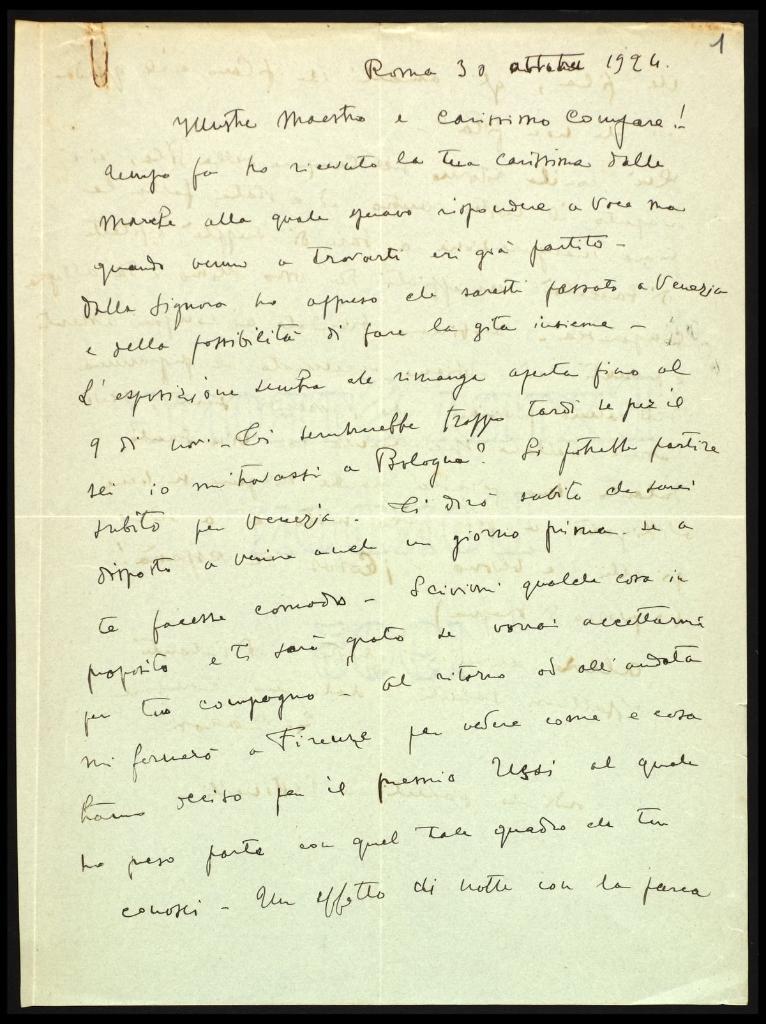 1
Roma 30 ottobre 1924.
Illustre Maestro e carissimo Compare!
Tempo fa ho ricevuto la tua carissima dalle
Marche alla quale speravo rispondere a voce ma
quando venni a trovarti eri già partito -
Dalla Signora ho appreso che saresti passato a Venezia
e della possibilità di fare la gita insieme -
L'esposizione sembra che rimanga aperta fino al
9 di nov. - Ti sembrerebbe troppo tardi se per il
sei io mi trovassi a Bologna? Si potrebbe partire
subito per Venezia. Ti dirò subito che sarei
disposto a venire anche un giorno prima se a
te facesse comodo - Scrivimi qualche cosa in
proposito e ti sarò grato se vorrai accettarmi
per tuo compagno - Al ritorno od all'andata
mi fermerò a Firenze per vedere come e cosa
hanno deciso per il premio Ussi al quale
ho preso parte con quel tale quadro che tu
conosci - Un effetto di notte con la